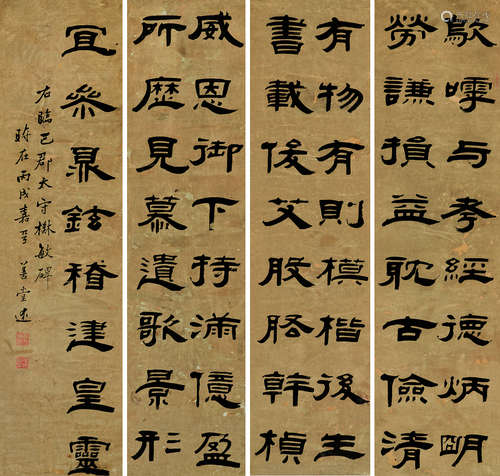 歍呼与考經德炳明
勞謙損益耽古儉清
有物有則模楷後生
書載俊艾股肱幹楨
威恩御下持滿億盈
所歷見慕遺歌景形
宜參鼎鉉稽建皇靈
右臨巴郡太守樊敏碑
時在丙戌嘉平 善堂